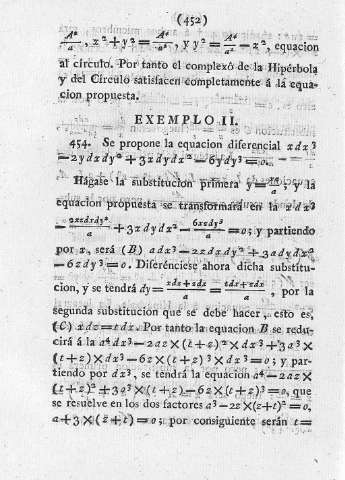 (452)
A⁴/a², x²+y²=A⁴/a², y y²=A⁴/a²−x², equacion
al círculo. Por tanto el complexô de la Hipérbola
y del Círculo satisfacen completamente á la equa-
cion propuesta.
EXEMPLO II.
454. Se propone la equacion diferencial xdx³
−2ydxdy²+3xdydx²−6ydy³=0.
Hágase la substitucion primera y=zx/a; y la
equacion propuesta se transformará en la xdx³
−2xzdxdy²/a+3xdydx²−6xzdy³/a=0; y partiendo
por x, será (B) adx³−2zdxdy²+3adydx²
−6zdy³=0. Diferénciese ahora dicha substitu-
cion, y se tendrá dy=xdz+zdx/a=tdx+zdx/a, por la
segunda substitucion que se debe hacer, esto es,
(C) xdz=tdx. Por tanto la equacion B se redu-
cirá á la a⁴dx³−2az×(t+z)²×dx³+3a³×
(t+z)×dx³−6z×(t+z)³×dx³=0; y par-
tiendo por dx³, se tendrá la equacion a⁴−2az×
(t+z)²+3a³×(t+z)−6z×(t+z)³=0, que
se resuelve en los dos factores a³−2z×(z+t)²=0,
a+3×(z+t)=0; por consiguiente serán t=